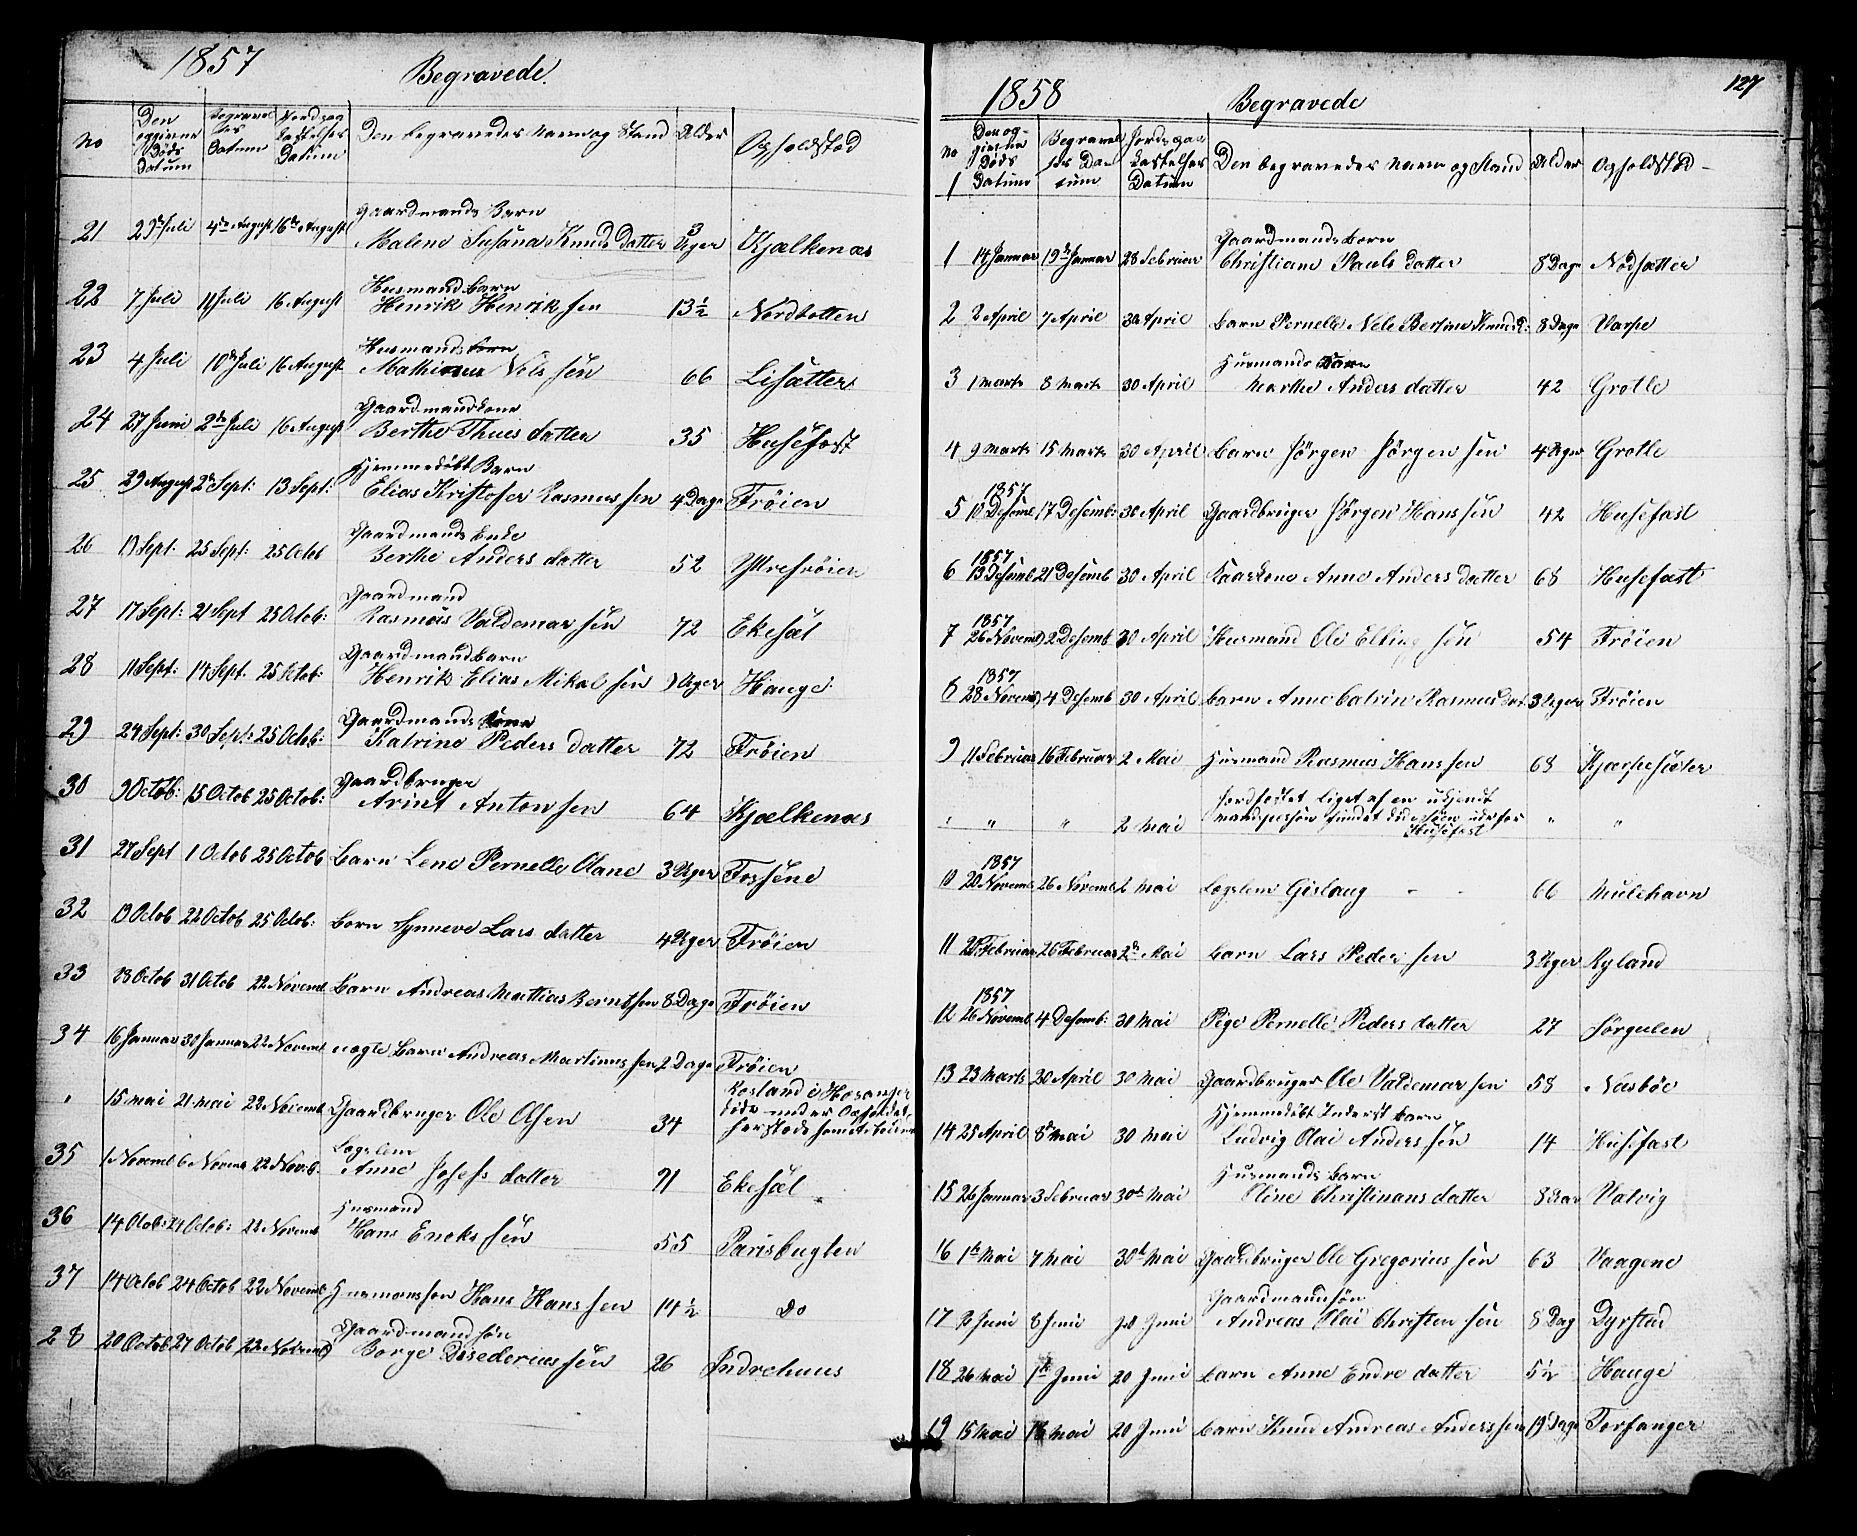 1857
Begravede.
No Den opgivne Døds Datum Begravelses Datum Jordspaakastelses Datum Den begravedes Navn og Stand Alder Opholdsted
Gaardmands Barn
21 29de Juli 4de August 16de August Malene Susana Knuds datter 3 Uger Kjælkenæs
Husmand barn
22 7 Juli 11 Juli 16 August Henrik Henrik sen 13½ Nordbotten
Husmands
23 4 Juli 10de Juli 16 August Nils sen 66 Lisætter
Gaardmandskone
24 27 Juni 2de Juli 16 August Berthe Thues datter 35 Husefest
Hjemmedøbt Barn
25 29 August 2de Sept: 13 Sept: Elias Kristofer Rasmus sen 4 Dage Frøien
Gaardmands Enke
26 19 Sept: 25 Sept: 25 Octob Berthe Anders datter 52 Yttrefrøien
Gaardmand
27 17 Sept: 21 Sept 25 Octob: Rasmus Valdemar sen 72 Ekesæt
Gaardmandbarn
28 11 Sept: 14 Sept. 25 Octob: Henrik Elias Mikal sen 9 Uger Hauge
Gaardmands kone
29 24 Sept: 30 Sept: 25 Octob: Katrine Peders datter 72 Frøien
Gaardbruger
30 9 Octob: 15 Octob 25 Octob: Arint Anton sen 64 Kjælkenæs
31 27 Sept 1 Octob 25 Octob Barn Lene Pernelle Olane 3 Uger Fosséne
32 19 Octob 22 Octob 25 Octob: Barn Synneve Lars datter 4 Uger Frøien
33 23 Octob 31 Octob 22 Novemb Barn Andreas Mattias Berntsen 8 Dage Frøien
34 16 Januar 30 Januar 22 Novemb uægte Barn Andreas Martinus sen 2 Dage Frøien
" 15 Mai 21 Mai 22 Novemb Gaardbruger Ole Olsen 34 Rosland i Hosanger døde under Opholdet herstæds
Lægslem
35 1 Novemb 6 Novemb 22 Novb. Anne Josefs datter 71 Ekesæt
Husmand
36 14 Octob: 24 Octob: 22 Novemb Hans Encks sen 55 Parisbugten
37 14 Octob 24 Octob 22 Novemb Husmansson Hans Hans sen 14½ Do
Gaardmand søn
28 20 Octob 27 Octob 22 Novemb Borge Disederius sen 26 Indrehuus
127
1858
Begravede
No Den opgivne Døds Datum Begravelses Datum Jordspaakastelses Datum Den begravedes Navn og Stand Alder Opholdsted
1
Gaardmands barn
1 14 Januar 19de Januar 28 Februar Christiane Pauls datter 8 Dage Nødsætter
2 2 April 7 April 30 April barn Pernelle Nele Bertine Knuds D. 8 Dage Varpe
Husmands
3 1 Marts 8 Marts 30 April Marthe Anders datter 42 Grotle
4 9 Marts 15 Marts 30 April barn Jörgen Jörgen sen 4 Uger Grotle
1857
5 10 Desemb 17 Desemb: 30 April Gaardbruger Jörgen Hans sen 42 Husefast
1857
6 13 Desemb 21 Desemb 30 April Kaarkone Anne Anders datter 68 Husefast
1857
7 26 Novemb 2 Desemb 30 April Husmand Ole Elling sen 54 Frøien
1857
8 28 Novemb 4 Desemb 30 April barn Anne Catrine Rasmus Dat. 3 Uger Frøien
9 11 Februar 16 Februar 2 Mai Husmand Rasmus Hans sen 68 Kjærpesæter
Jordfæstet Liget af en ukjendt
" " " 2 Mai mandperson fundet i søen udefor " "
Husefast
1857
10 20 Novemb 26 Novemb 2 Mai Lægslem Gislaug - - 66 Mulehavn
11 20 Februar 26 Februar 2de Mai barn Lars Peder sen 3 Uger Ryland
1857
12 26 Novemb 4 Desemb: 30 Mai Pige Pernelle Peders datter 27 Sørgulen
13 23 Marts 20 April 30 Mai Gaardbruger Ole Valdemar sen 58 Næsbøe
Hjemmedøbt Inderst barn
14 25 April 8de Mai 30 Mai Ludvig Olai Anders sen 14 Husefast
Husmands barn
15 26 Januar 3 Februar 30te Mai Oline Christinans datter 8 Aar Vatvig
16 1te Mai 7 Mai 30te Mai Gaardbruger Ole Gregorius sen 63 Vaagene
Gaardmannsøn
17 2 Juni 8 Juni 20 Juni Andreas Olai Christen sen 8 Dag Dyrstad
18 26 Mai 1te Juni 20 Juni barn Anne Endre datter 5½ Hauge
19 15 Mai Mai 20 Juni barn Knud Andreas Anderssen 19 Dage Torfanger